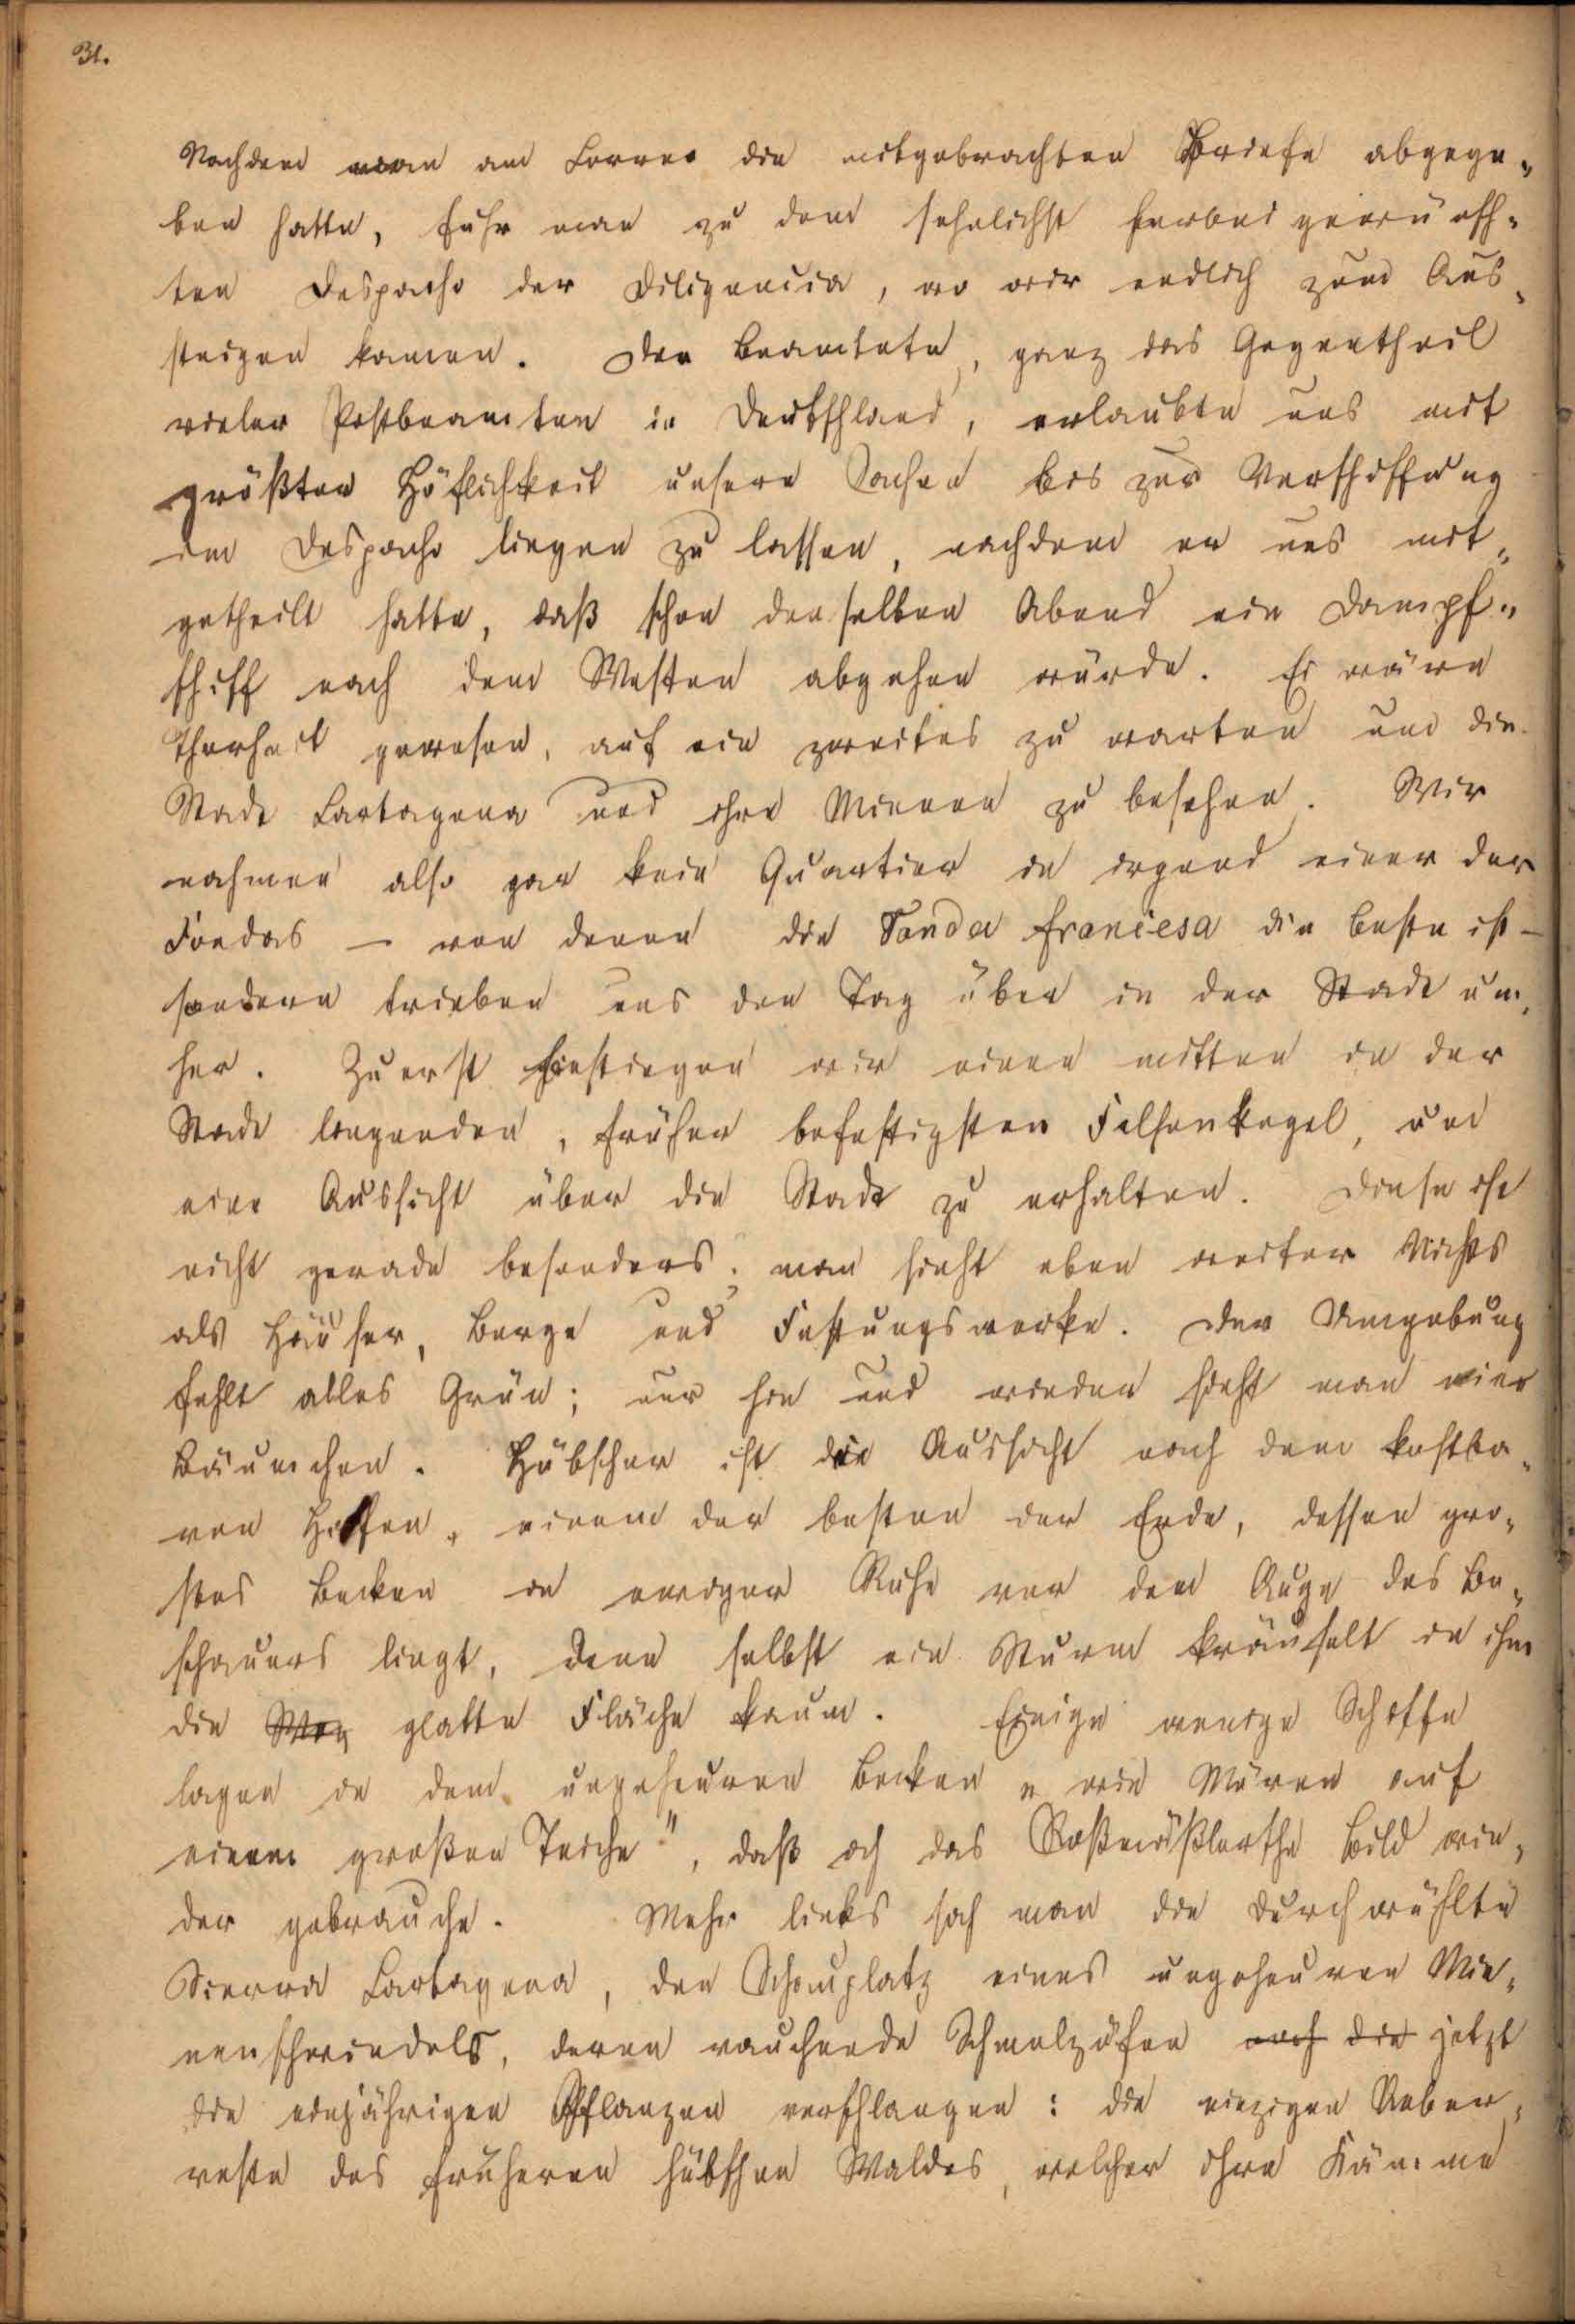 31.
Nachdem man am Correo die mitgebrachten Briefe abgege-
ben hatte, fuhr man zu dem sehnlichst herbei gewünsch-
ten Despacho der Diligencia, wo wir endlich zum Aus-
steigen kamen. Der Beamtete, ganz das Gegentheil
vieler Postbeamten in Deutschland, erlaubte uns mit
größter Höflichkeit unsere Sachen bis zur Verschiffung
im Despacho liegen zu lassen, nachdem er uns mit-
getheilt hatte, daß schon denselben Abend ein Dampf-
schiff nach dem Westen abgehen würde. Es wäre
Thorheit gewesen, auf ein zweites zu warten um die
Stadt Cartagena und ihre Mienen zu besehen. Wir
nahmen also gar kein Quartier in irgend einer der
Fondas — von denen die Fonda francesa die beste ist —
sondern trieben uns den Tag über in der Stadt um-
her. Zuerst bestiegen wir einen mitten in der
Stadt liegenden, früher befestigten Felsenkegel, um
eine Aussicht über die Stadt zu erhalten. Diese ist
nicht gerade besonders; man sieht eben weiter Nichts
als Häuser, Berge und Festungswerke. Der Umgebung
fehlt alles Grün; nur hin und wieder sieht man ein
Bäumchen. Hübscher ist die Aussicht nach dem kostba-
ren Hafen, einem der besten der Erde, dessen gro-
ßes Becken in ewiger Ruhe vor dem Auge des Be-
schauers liegt, denn selbst ein Sturm kräuselt in ihm
die glatte Fläche kaum. Einige wenige Schiffe
lagen in dem ungeheuren Becken „wie Möven auf
einem großen Teiche", daß ich das Roßmäßlersche Bild wie-
der gebrauche. Mehr links sah man die durchwühlte
Sierra Cartagena, den Schauplatz eines ungeheuren Mie-
nenschwindels, deren rauchende Schmelzöfen noch die jetzt
die einjährigen Pflanzen verschlangen: die einzigen Ueber-
reste des früheren hübschen Waldes, welcher ihre Kämme